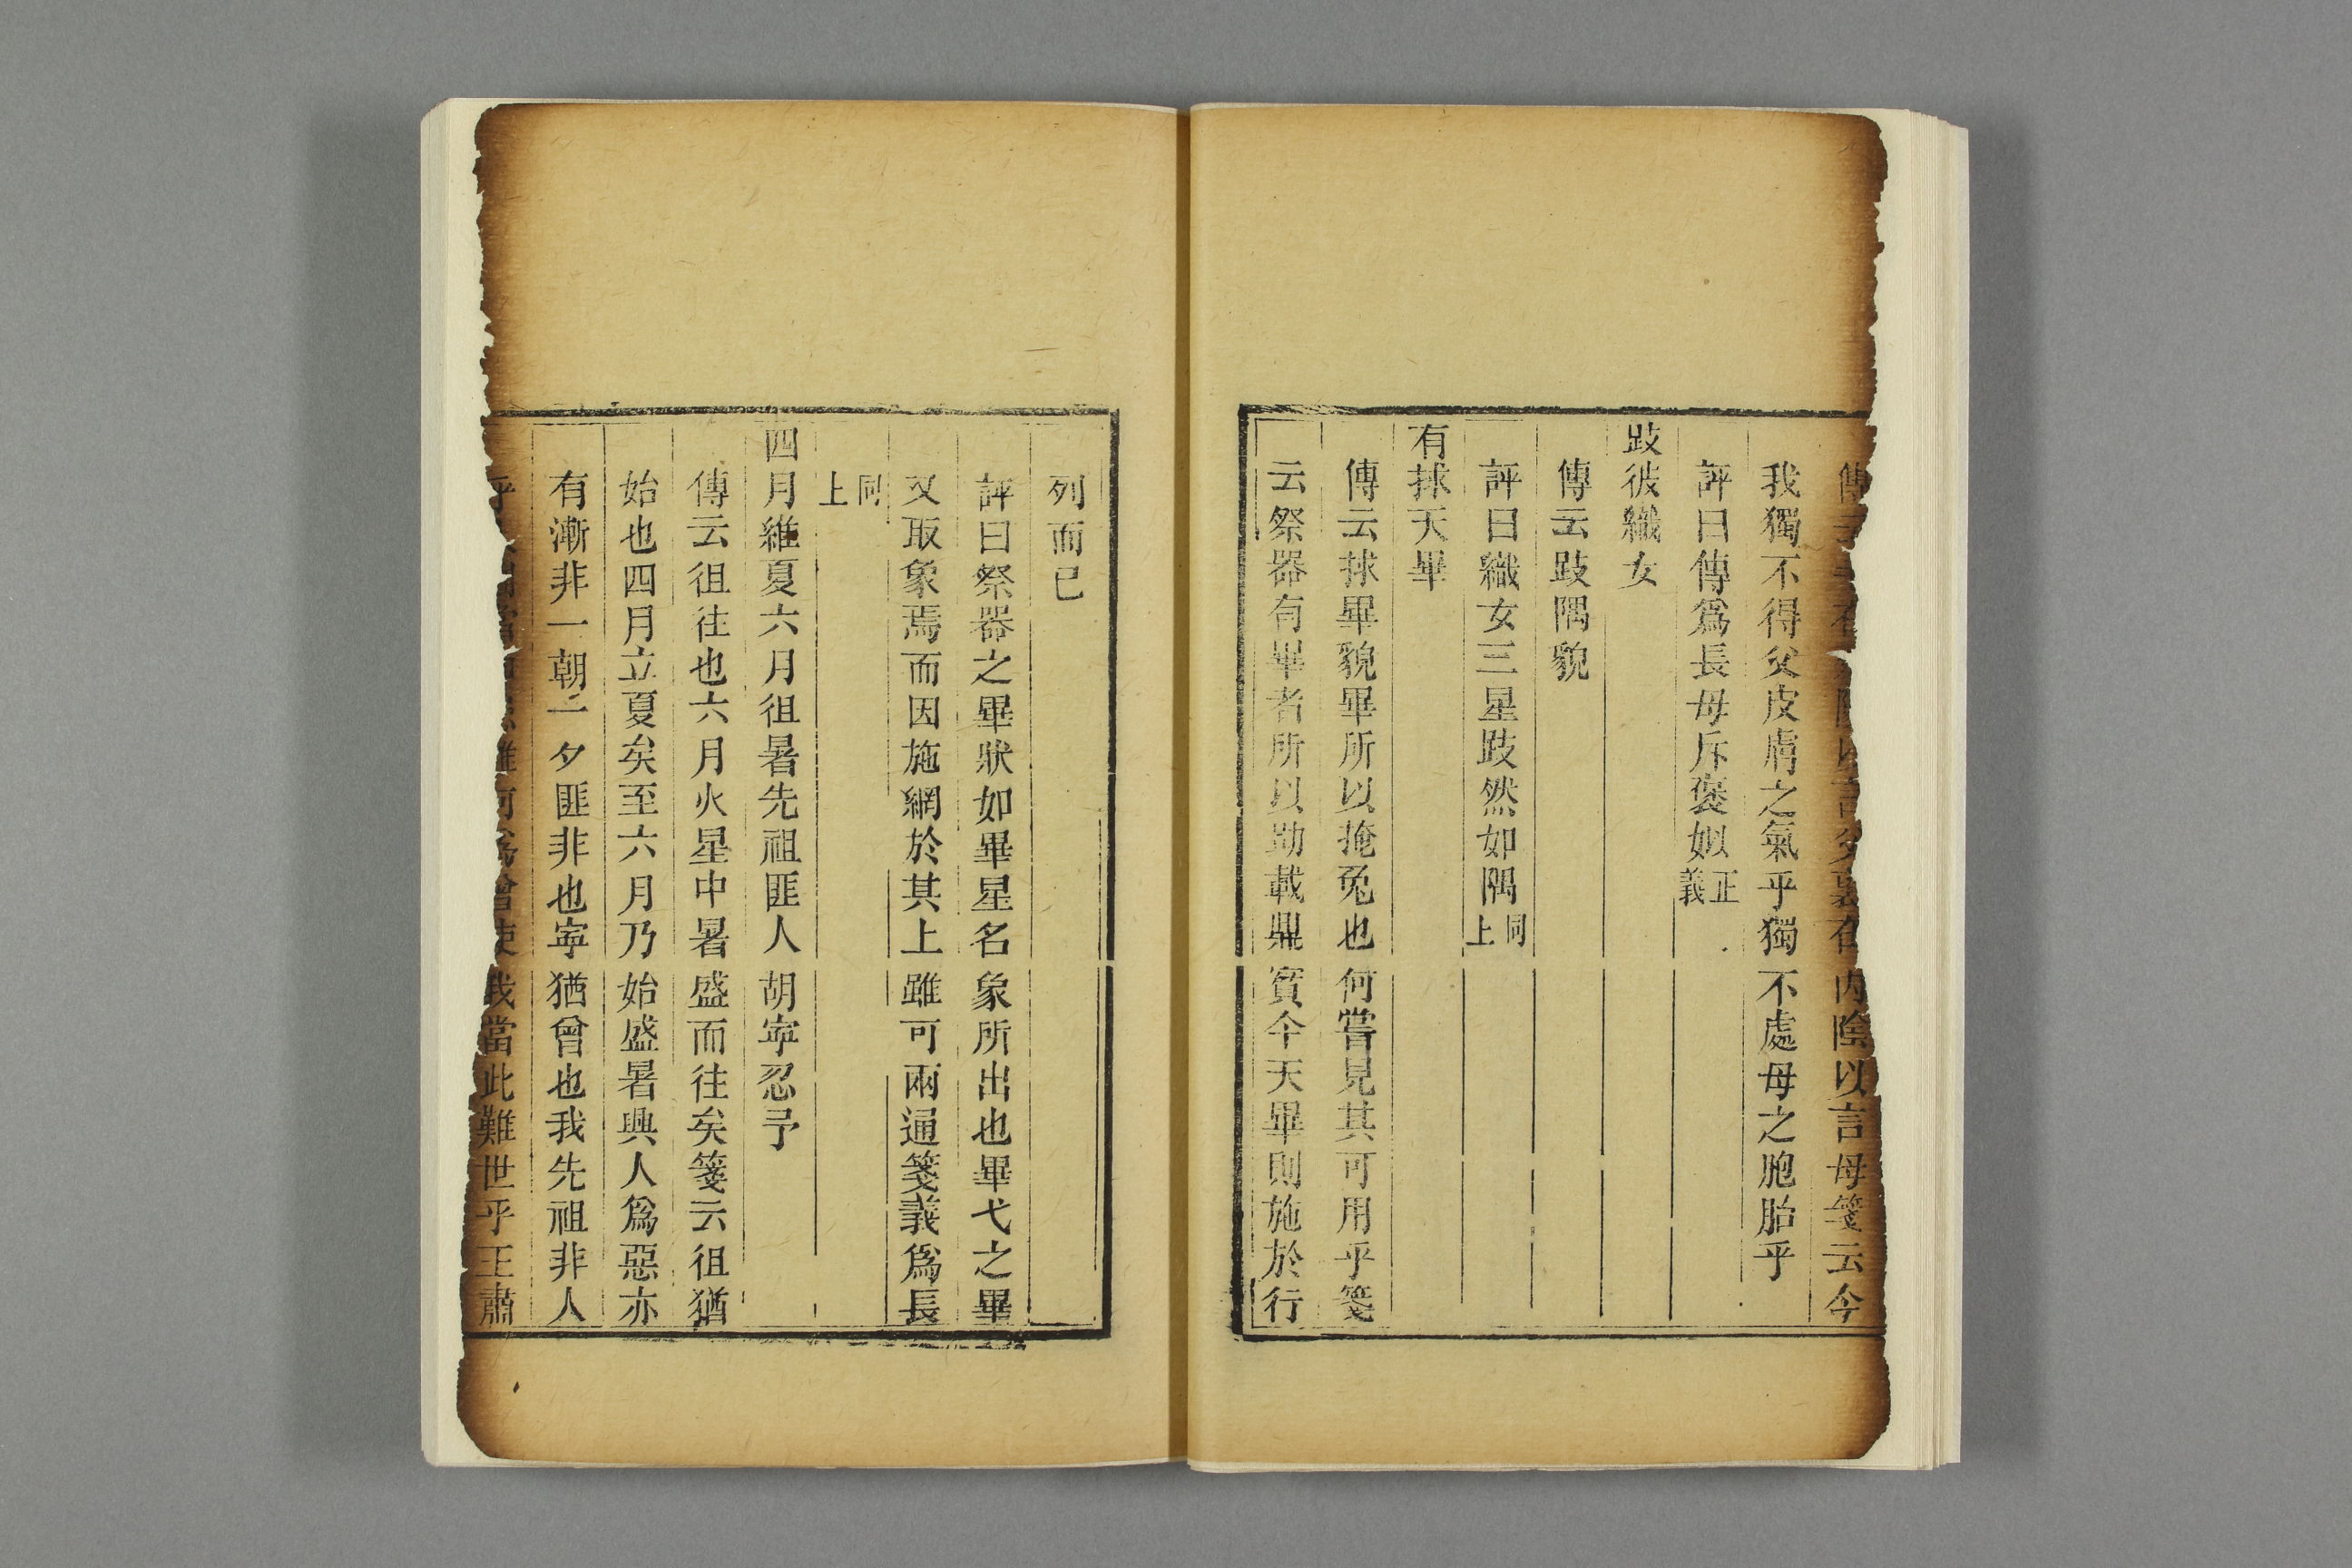 傳云毛在外陽以言父裏在內陰以言母箋云今
我獨不得父皮膚之氣乎獨不處母之胞胎乎
評曰傳爲長母斥褒姒正義
跂彼織女
傳云跂隅貌
評曰織女三星跂然如隅同上
有捄天畢
傳云捄畢貌畢所以掩兔也何嘗見其可用乎箋
云祭器有畢者所以助載鼎實今天畢則施於行
列而已
評曰祭器之畢狀如畢星名象所出也畢弋之畢
又取象焉而因施網於其上雖可兩通箋義爲長
同上
四月維夏六月徂暑先祖匪人胡寧忍予
傳云徂往也六月火星中暑盛而往矣箋云徂猶
始也四月立夏矣至六月乃始盛暑興人爲惡亦
有漸非一朝一夕匪非也寧猶曾也我先祖非人
乎 當 難何爲曾使我當此難世乎王肅